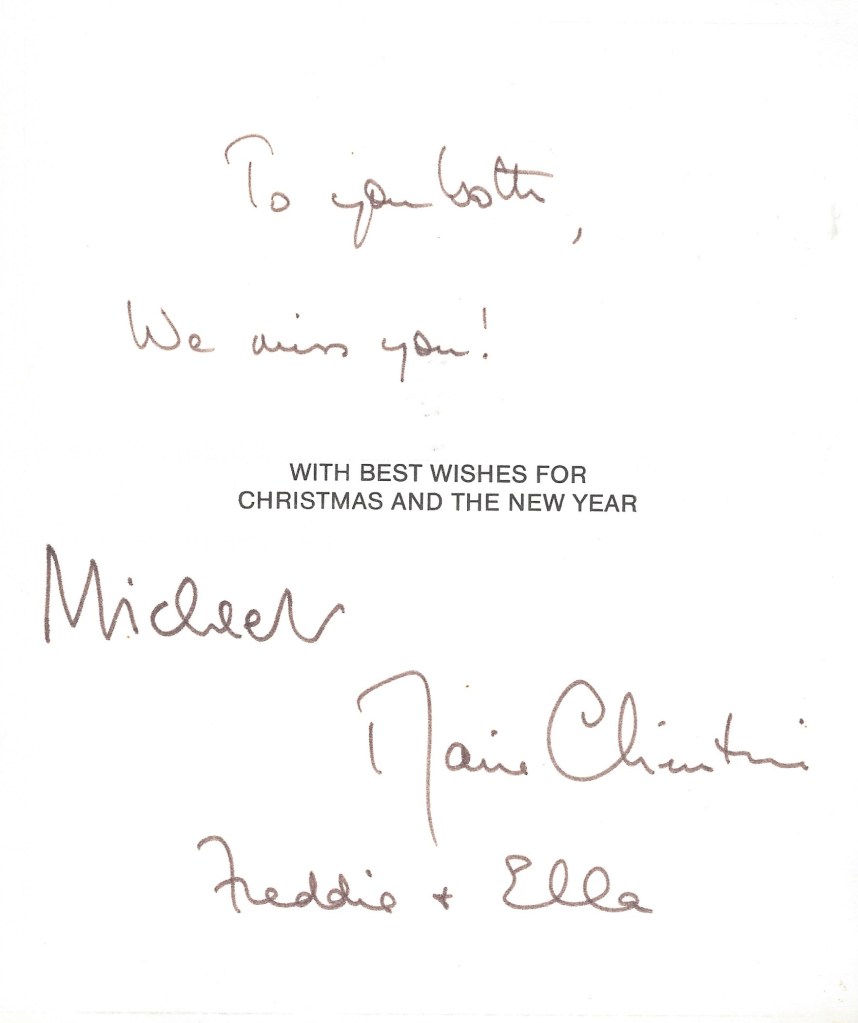 To you both,
We miss you!
WITH BEST WISHES FOR
CHRISTMAS AND THE NEW YEAR
Michael
Marie Christine
Freddie + Ella